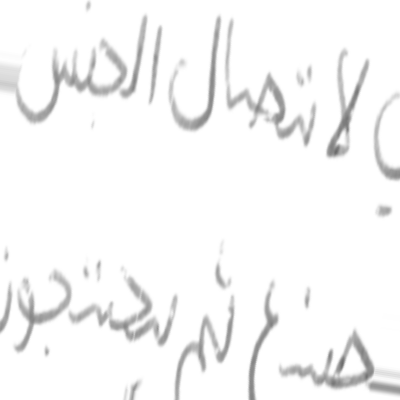 لاتصال الجنس
صنع ثم يحتجون